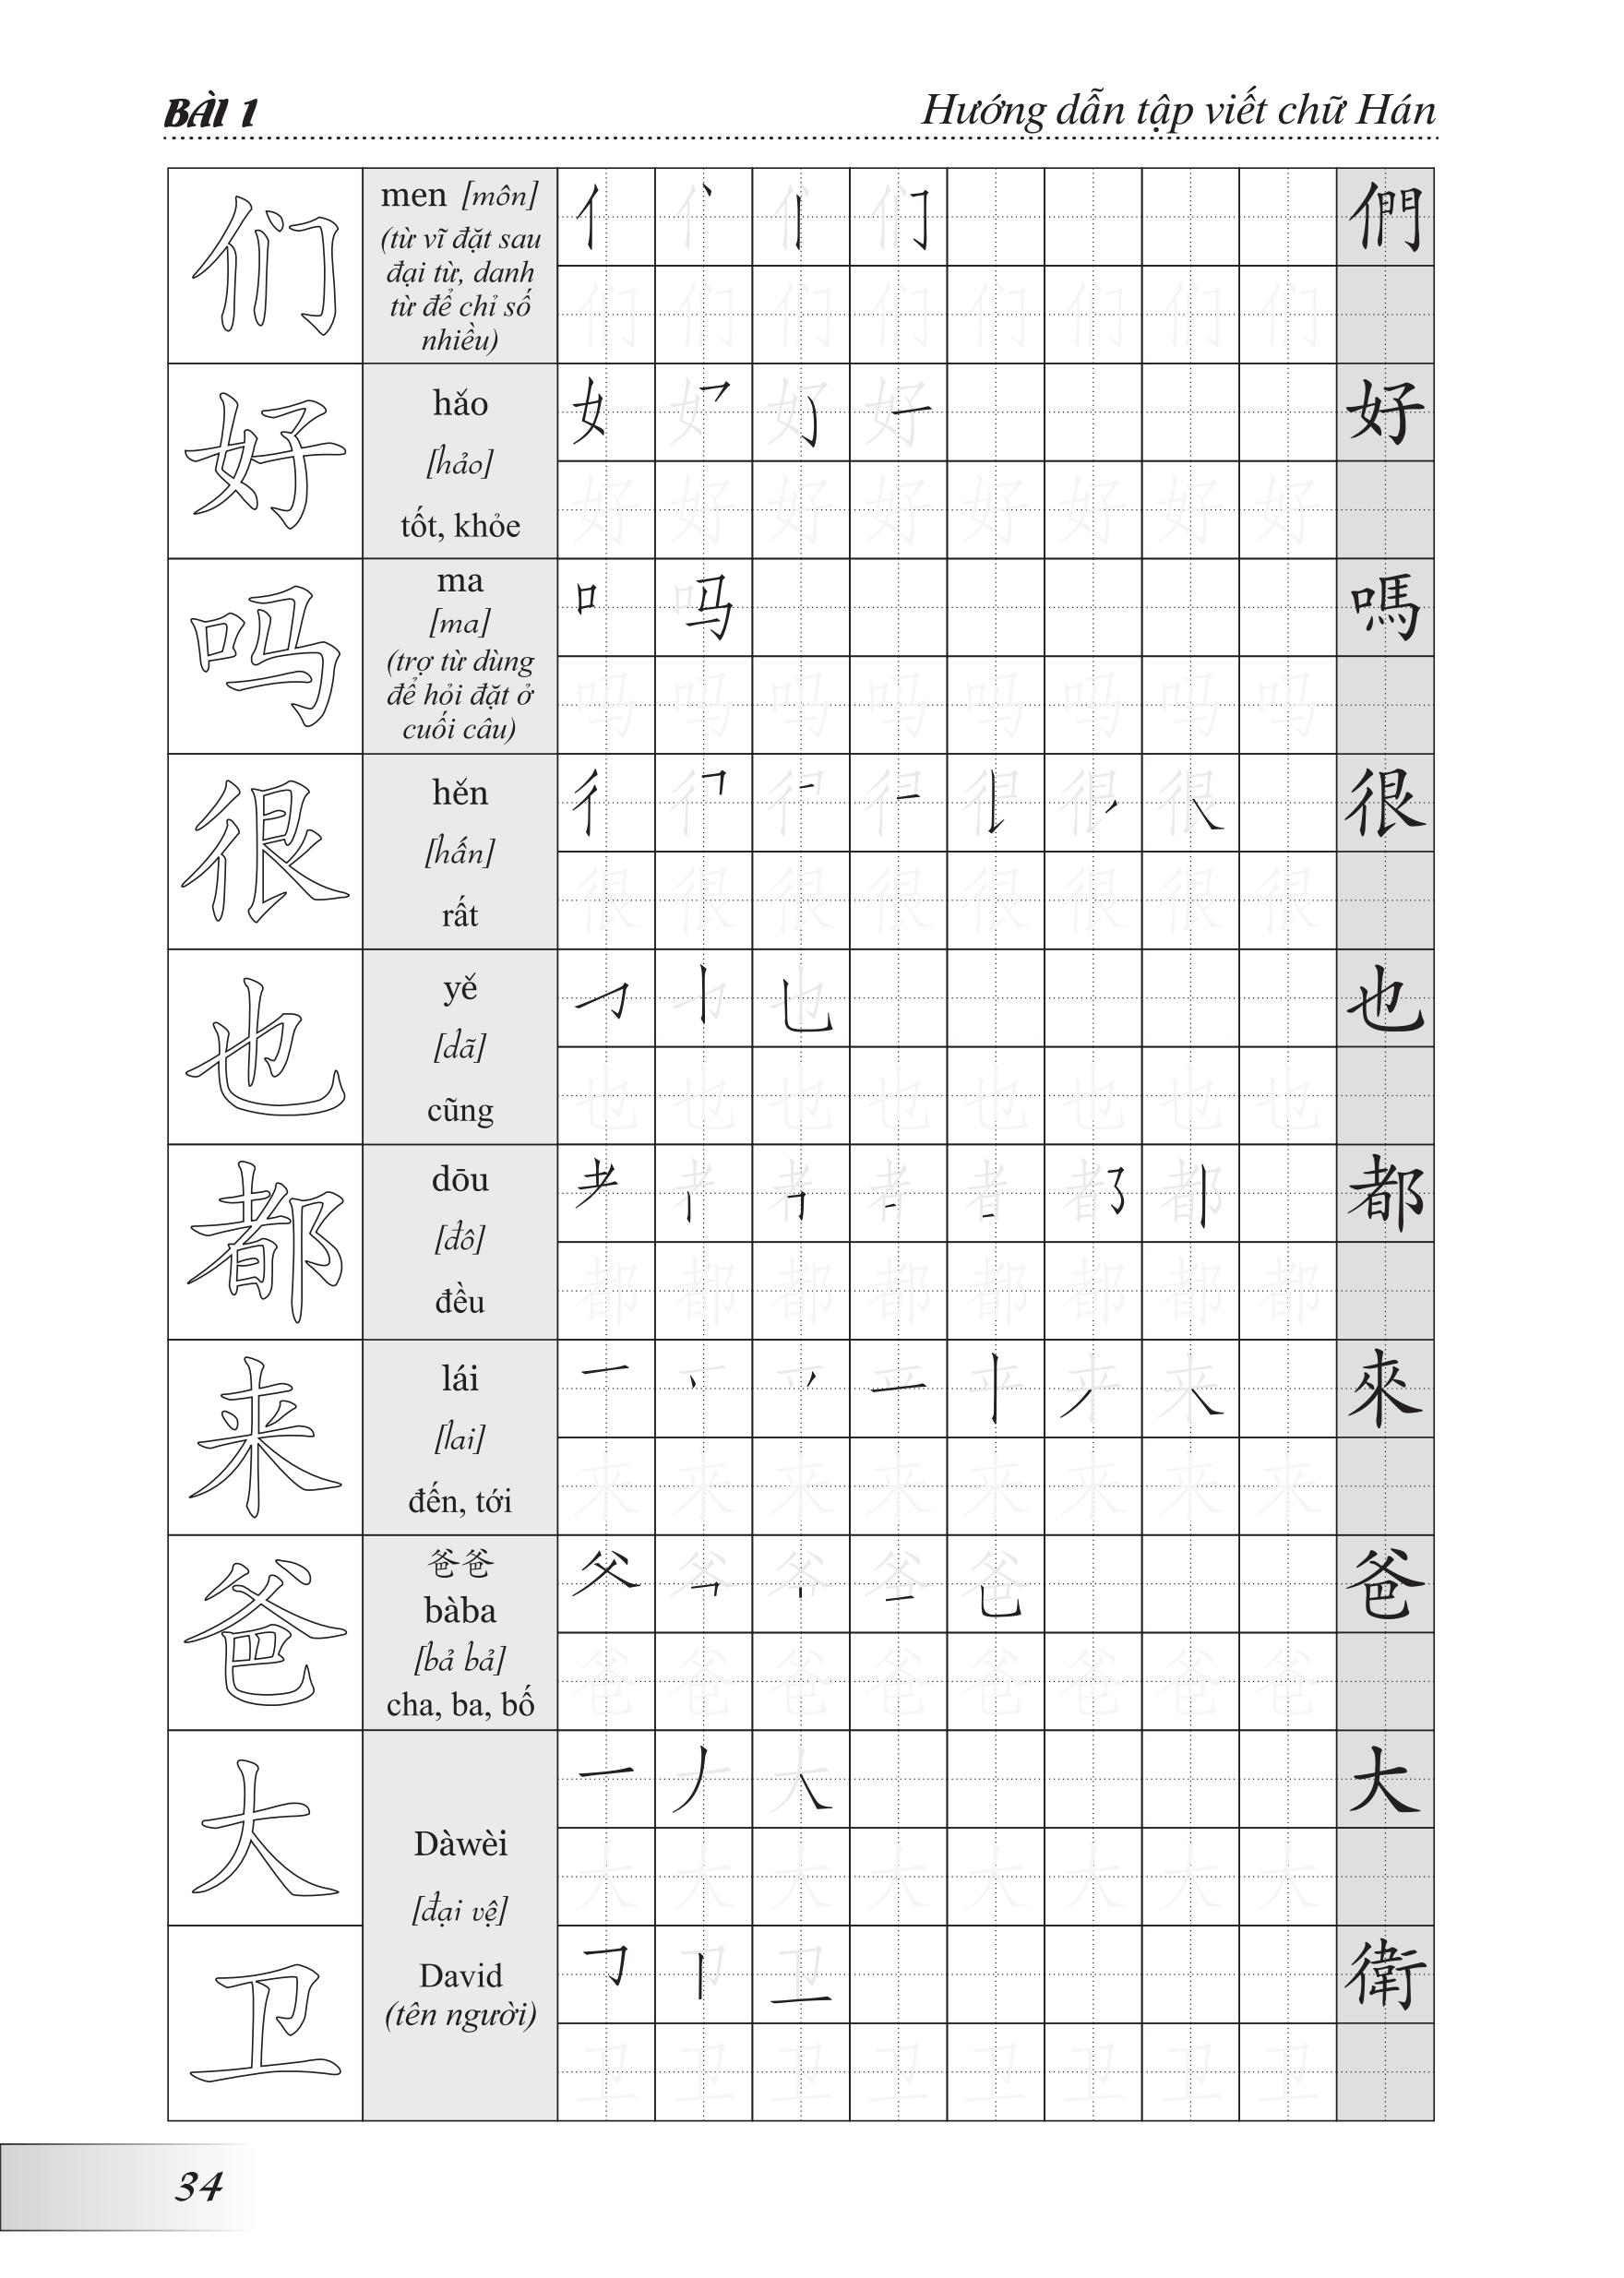 BÀI 1
Hướng dẫn tập viết chữ Hán
们
men [môn]
(từ vĩ đặt sau
đại từ, danh
từ để chỉ số
nhiều)
們
们 们 们 们 们 们 们 们
好
hǎo
[hảo]
tốt, khỏe
好
好 好 好 好 好 好 好 好
吗
ma
[ma]
(trợ từ dùng
để hỏi đặt ở
cuối câu)
口 吗
嗎
吗 吗 吗 吗 吗 吗 吗 吗
很
hěn
[hấn]
rất
很
很 很 很 很 很 很 很 很
也
yě
[dã]
cũng
也
也 也 也 也 也 也 也 也
都
dōu
[đô]
đều
都
都 都 都 都 都 都 都 都
来
lái
[lai]
đến, tới
來
来 来 来 来 来 来 来 来
爸
爸爸
bàba
[bả bả]
cha, ba, bố
爸
爸 爸 爸 爸 爸 爸 爸 爸
大
Dàwèi
[đại vệ]
David
(tên người)
大
大 大 大 大 大 大 大 大
卫
衛
卫 卫 卫 卫 卫 卫 卫 卫
34